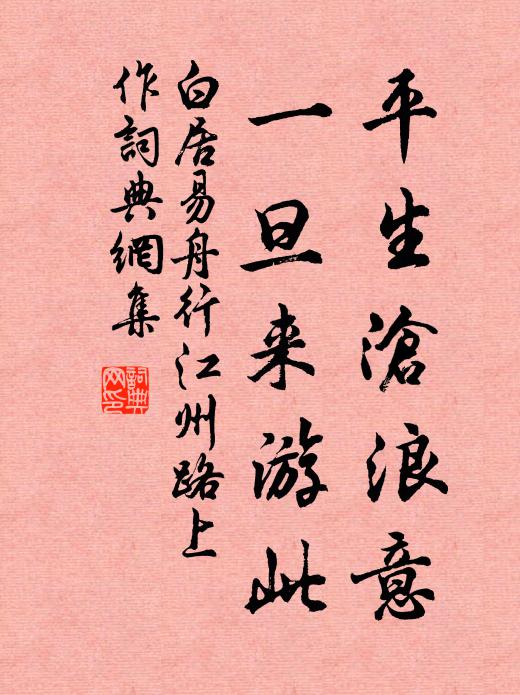 平生滄浪意
一旦来游此
白居易舟行江州路上
作詞典網集
詞典
网印